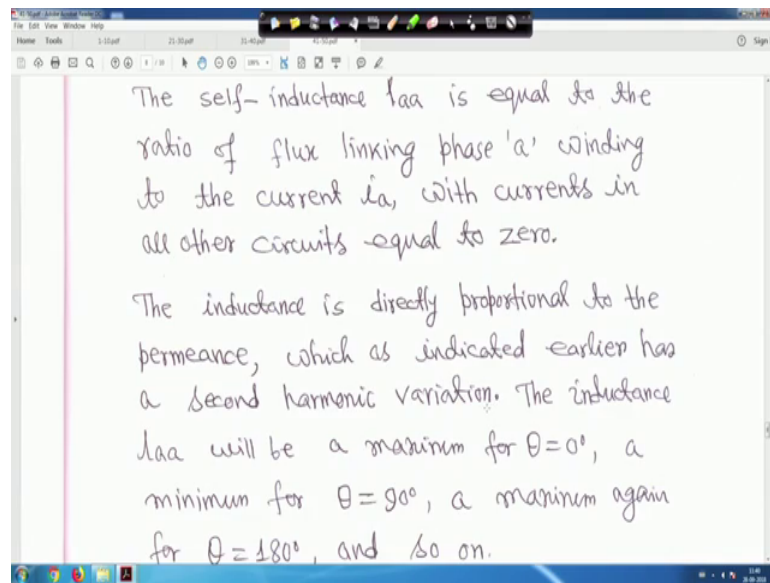 File Edit View Window Help
Home Tools 1-10.pdf 21-30.pdf 31-40.pdf 41-50.pdf × Sign
The self-inductance laa is equal to the
ratio of flux linking phase 'a' winding
to the current ia, with currents in
all other circuits equal to zero.
The inductance is directly proportional to the
permeance, which as indicated earlier has
a second harmonic variation. The inductance
laa will be a maximum for θ=0°, a
minimum for θ = 90°, a maximum again
for θ = 180°, and so on.
11:40